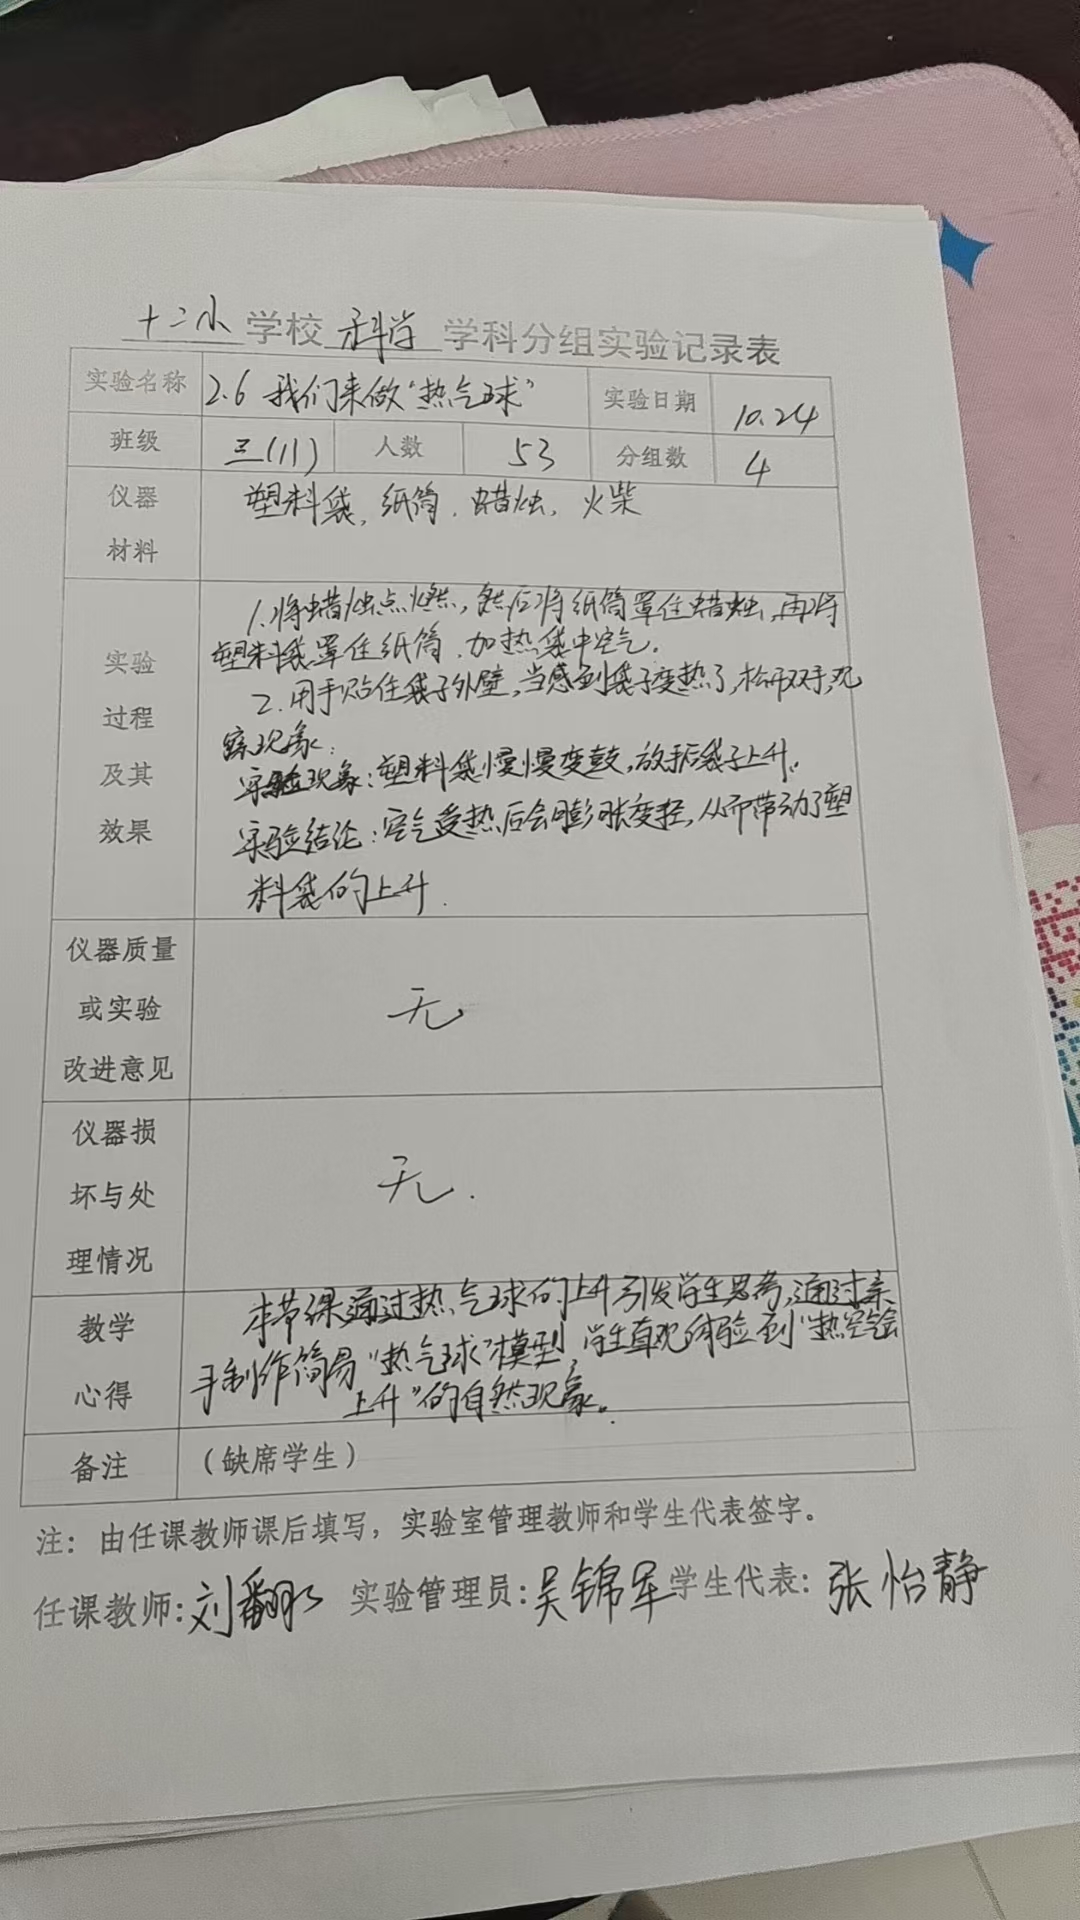 十二小学校科学学科分组实验记录表
实验名称 2.6 我们来做“热气球” 实验日期 10.24
班级 三(11) 人数 53 分组数 4
仪器 塑料袋、纸筒、蜡烛、火柴
材料
1.将蜡烛点燃,然后将纸筒罩住蜡烛,再将
塑料袋罩住纸筒,加热袋中空气.
2.用手贴住袋子外壁,当感到袋子变热了,松开双手,观
察现象.
实验现象:塑料袋慢慢变鼓,放手后袋子上升.
实验结论:空气受热后会膨胀变轻,从而带动了塑
料袋的上升.
实验
过程
及其
效果
仪器质量
或实验 无
改进意见
仪器损
坏与处 无.
理情况
教学
心得
本节课通过热气球的上升引发学生思考,通过亲
手制作简易“热气球”模型,学生直观体验到“热空气会
上升”的自然现象。
备注 (缺席学生)
注:由任课教师课后填写,实验室管理教师和学生代表签字。
任课教师:刘 实验管理员:吴锦军 学生代表:张怡静